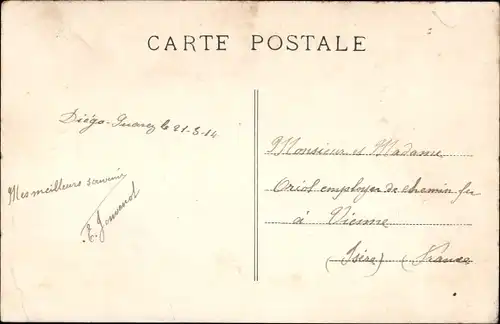 CARTE POSTALE
Diégo-Suarez le 21-5-14
Mes meilleurs souvenirs
Monsieur et Madame
Oriol employer de chemin fer
à Vienne
(Isère) (France)